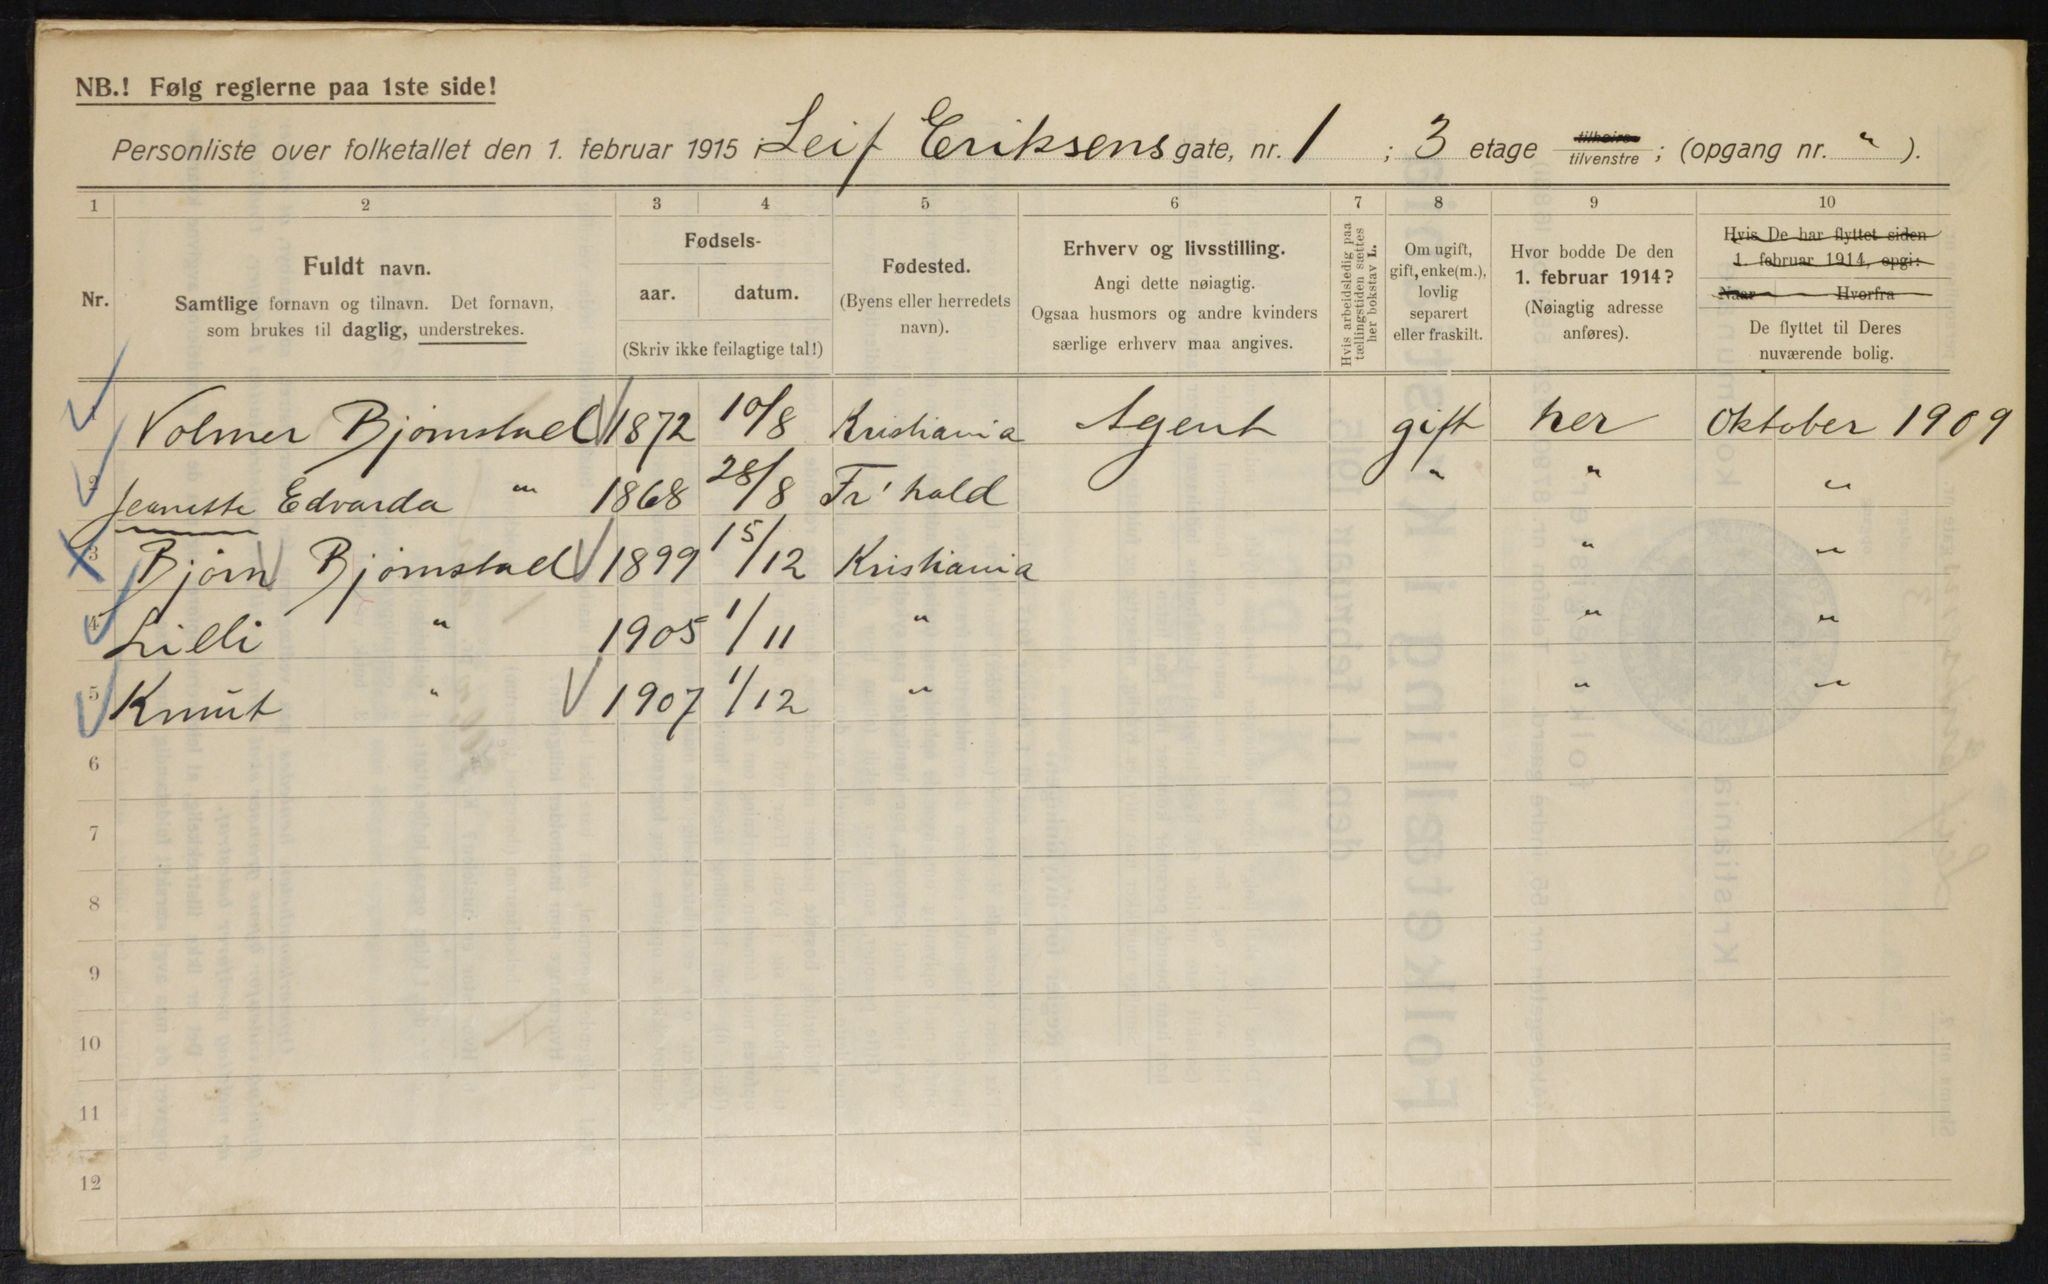 NB.! Følg reglerne paa 1ste side!
Personliste over folketallet den 1. februar 1915 i Leif Eriksens gate, nr. 1 ; 3 etage tilhøire tilvenstre ; (opgang nr. " ).
1 2 3 4 5 6 7 8 9 10
Nr.
Fuldt navn.
Samtlige fornavn og tilnavn. Det fornavn,
som brukes til daglig, understrekes.
Fødsels-
aar. datum.
(Skriv ikke feilagtige tal!)
Fødested.
(Byens eller herredets
navn).
Erhverv og livsstilling.
Angi dette nøiagtig.
Ogsaa husmors og andre kvinders
særlige erhverv maa angives.
Hvis arbeidsledig paa
tællingstiden sættes
her bokstav L.
Om ugift,
gift, enke(m.),
lovlig
separert
eller fraskilt.
Hvor bodde De den
1. februar 1914?
(Nøiagtig adresse
anføres).
Hvis De har flyttet siden
1. februar 1914, opgi:
Naar Hvorfra
De flyttet til Deres
nuværende bolig.
1 Volmer Bjørnstad 1872 10/8 Kristiania Agent gift her Oktober 1909
2 Jeanette Edvarda " 1868 28/8 Fr'hald " " "
3 Bjørn Bjørnstad 1899 15/12 Kristiania " "
4 Lilli " 1905 1/11 " " "
5 Knut " 1907 1/12 " " "
6
7
8
9
10
11
12